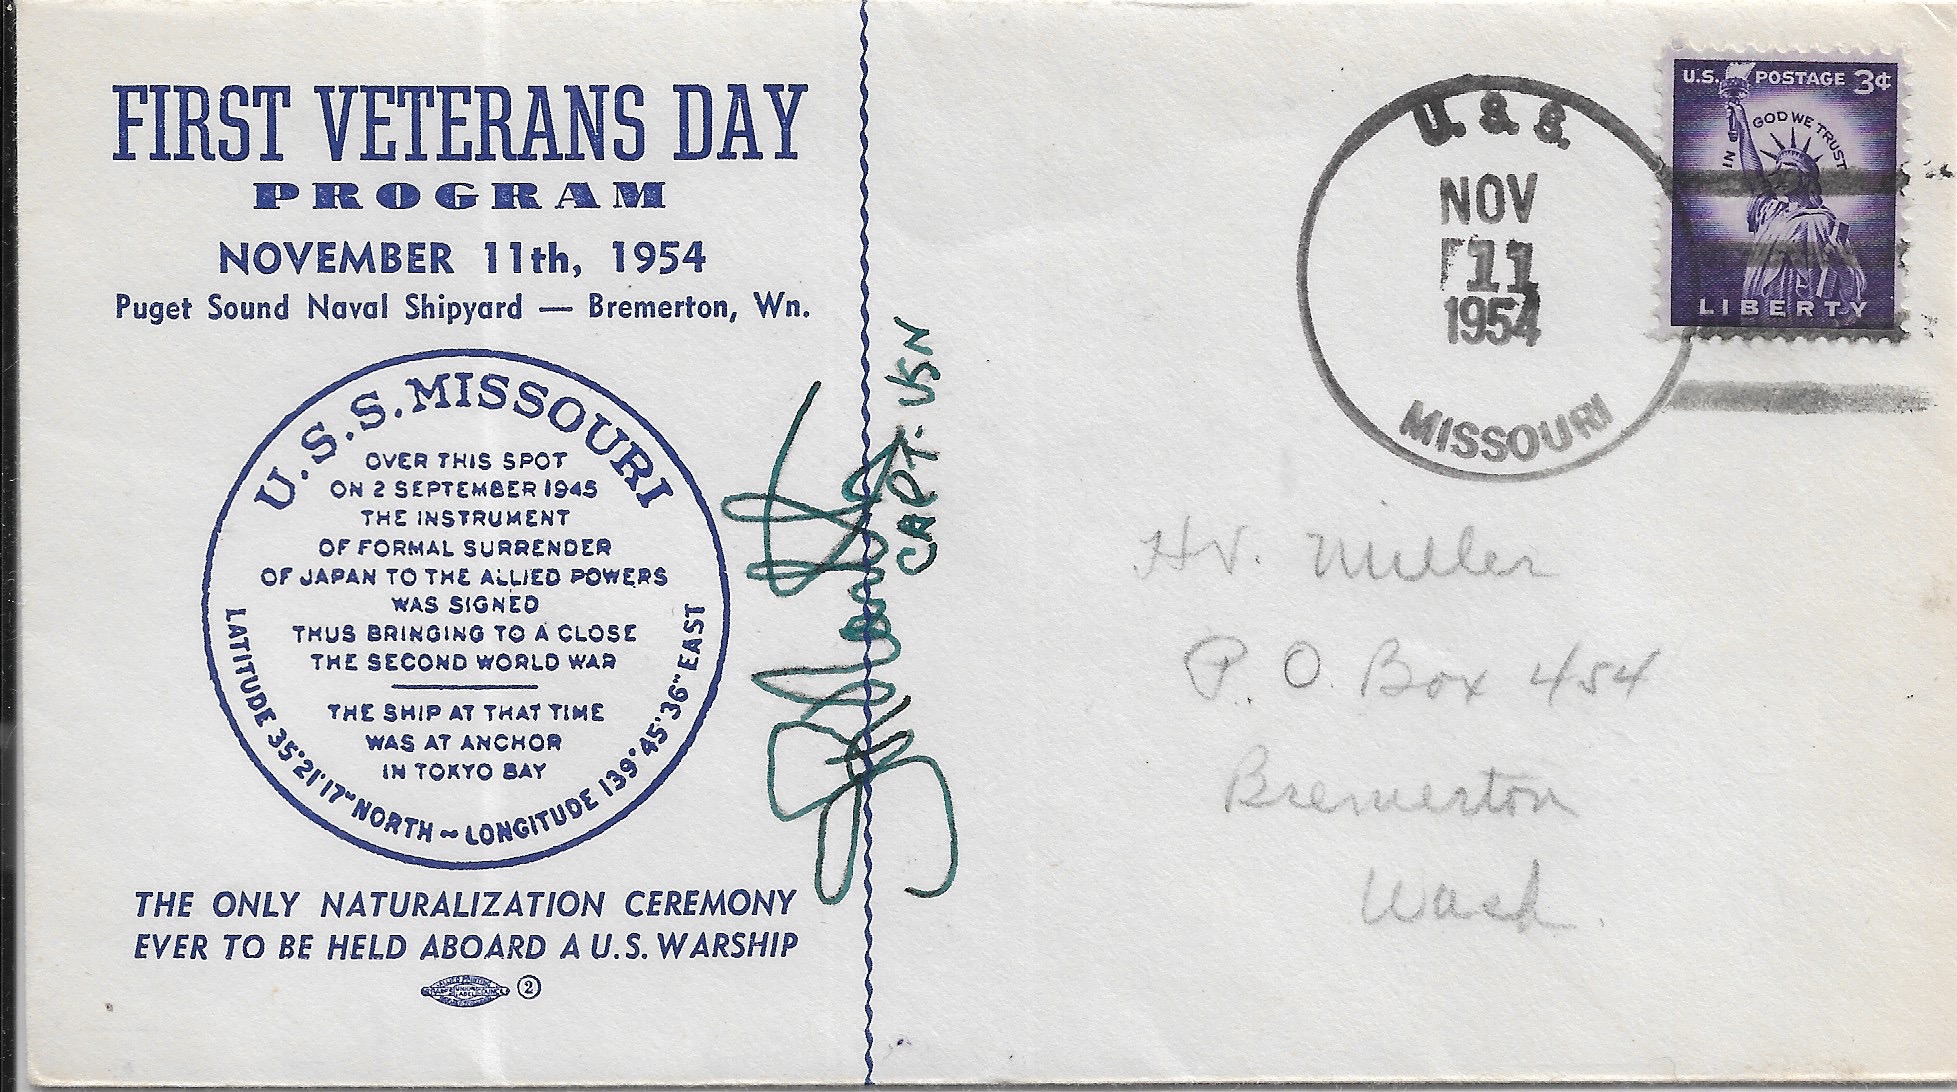 FIRST VETERANS DAY
PROGRAM
NOVEMBER 11th, 1954
Puget Sound Naval Shipyard — Bremerton, Wn.
U.S.S. MISSOURI
OVER THIS SPOT
ON 2 SEPTEMBER 1945
THE INSTRUMENT
OF FORMAL SURRENDER
OF JAPAN TO THE ALLIED POWERS
WAS SIGNED
THUS BRINGING TO A CLOSE
THE SECOND WORLD WAR
THE SHIP AT THAT TIME
WAS AT ANCHOR
IN TOKYO BAY
LATITUDE 35°21'17" NORTH ~ LONGITUDE 139°45'36" EAST
THE ONLY NATURALIZATION CEREMONY
EVER TO BE HELD ABOARD A U.S. WARSHIP
2
CAPT. USN
U.S.S.
NOV
11
1954
MISSOURI
U.S. POSTAGE 3¢
IN GOD WE TRUST
LIBERTY
H.V. Miller
P.O. Box 454
Bremerton
Wash.